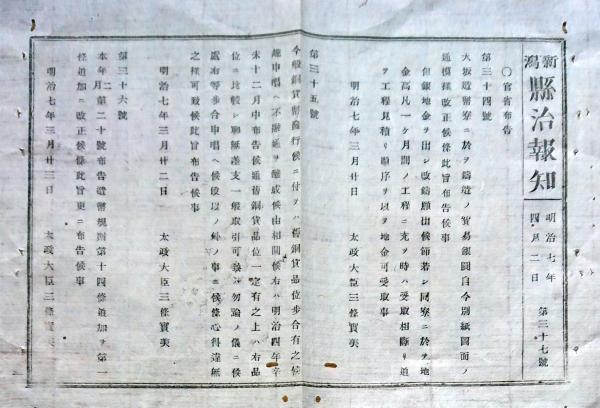 新潟縣治報知
明治七年四月二日
第三十七號
○官省布告
第三十四號
大坂造幣寮ニ於ヲ鑄造ノ貿易銀圓自今別紙圖面ノ
通模樣改正候條此旨布告候事
但銀地金ヲ出シ改鑄願出候節若シ同寮ニ於ヲ地
金高凡一ケ月間ノ工程ニ充ヲ時ハ受取相斷リ追
ヲ工程見積リ順序ヲ以ヲ地金可受取事
明治七年三月廿日
太政大臣三條實美
第三十五號
今般銅貨幣發行候ニ付ヲハ舊銅貨品位步合有之候
趣申唱ヘ不融通ヲ釀成候由相聞候右ハ明治四年辛
未十二月中布告候通舊銅貨品位一定有之上ハ右品
位ニ比較シ聊無差支一般取引可致ハ勿論ノ儀ニ候
處右等步合申唱ヘ候段以ノ外ノ事ニ候條心得違無
之樣可致候此旨布告候事
明治七年三月廿二日
太政大臣三條實美
第三十六號
本年二月第二十號布告造幣規則第十四條追加ヲ第一
條追加ニ改正候條此旨更ニ布告候事
明治七年三月廿三日
太政大臣三條實美